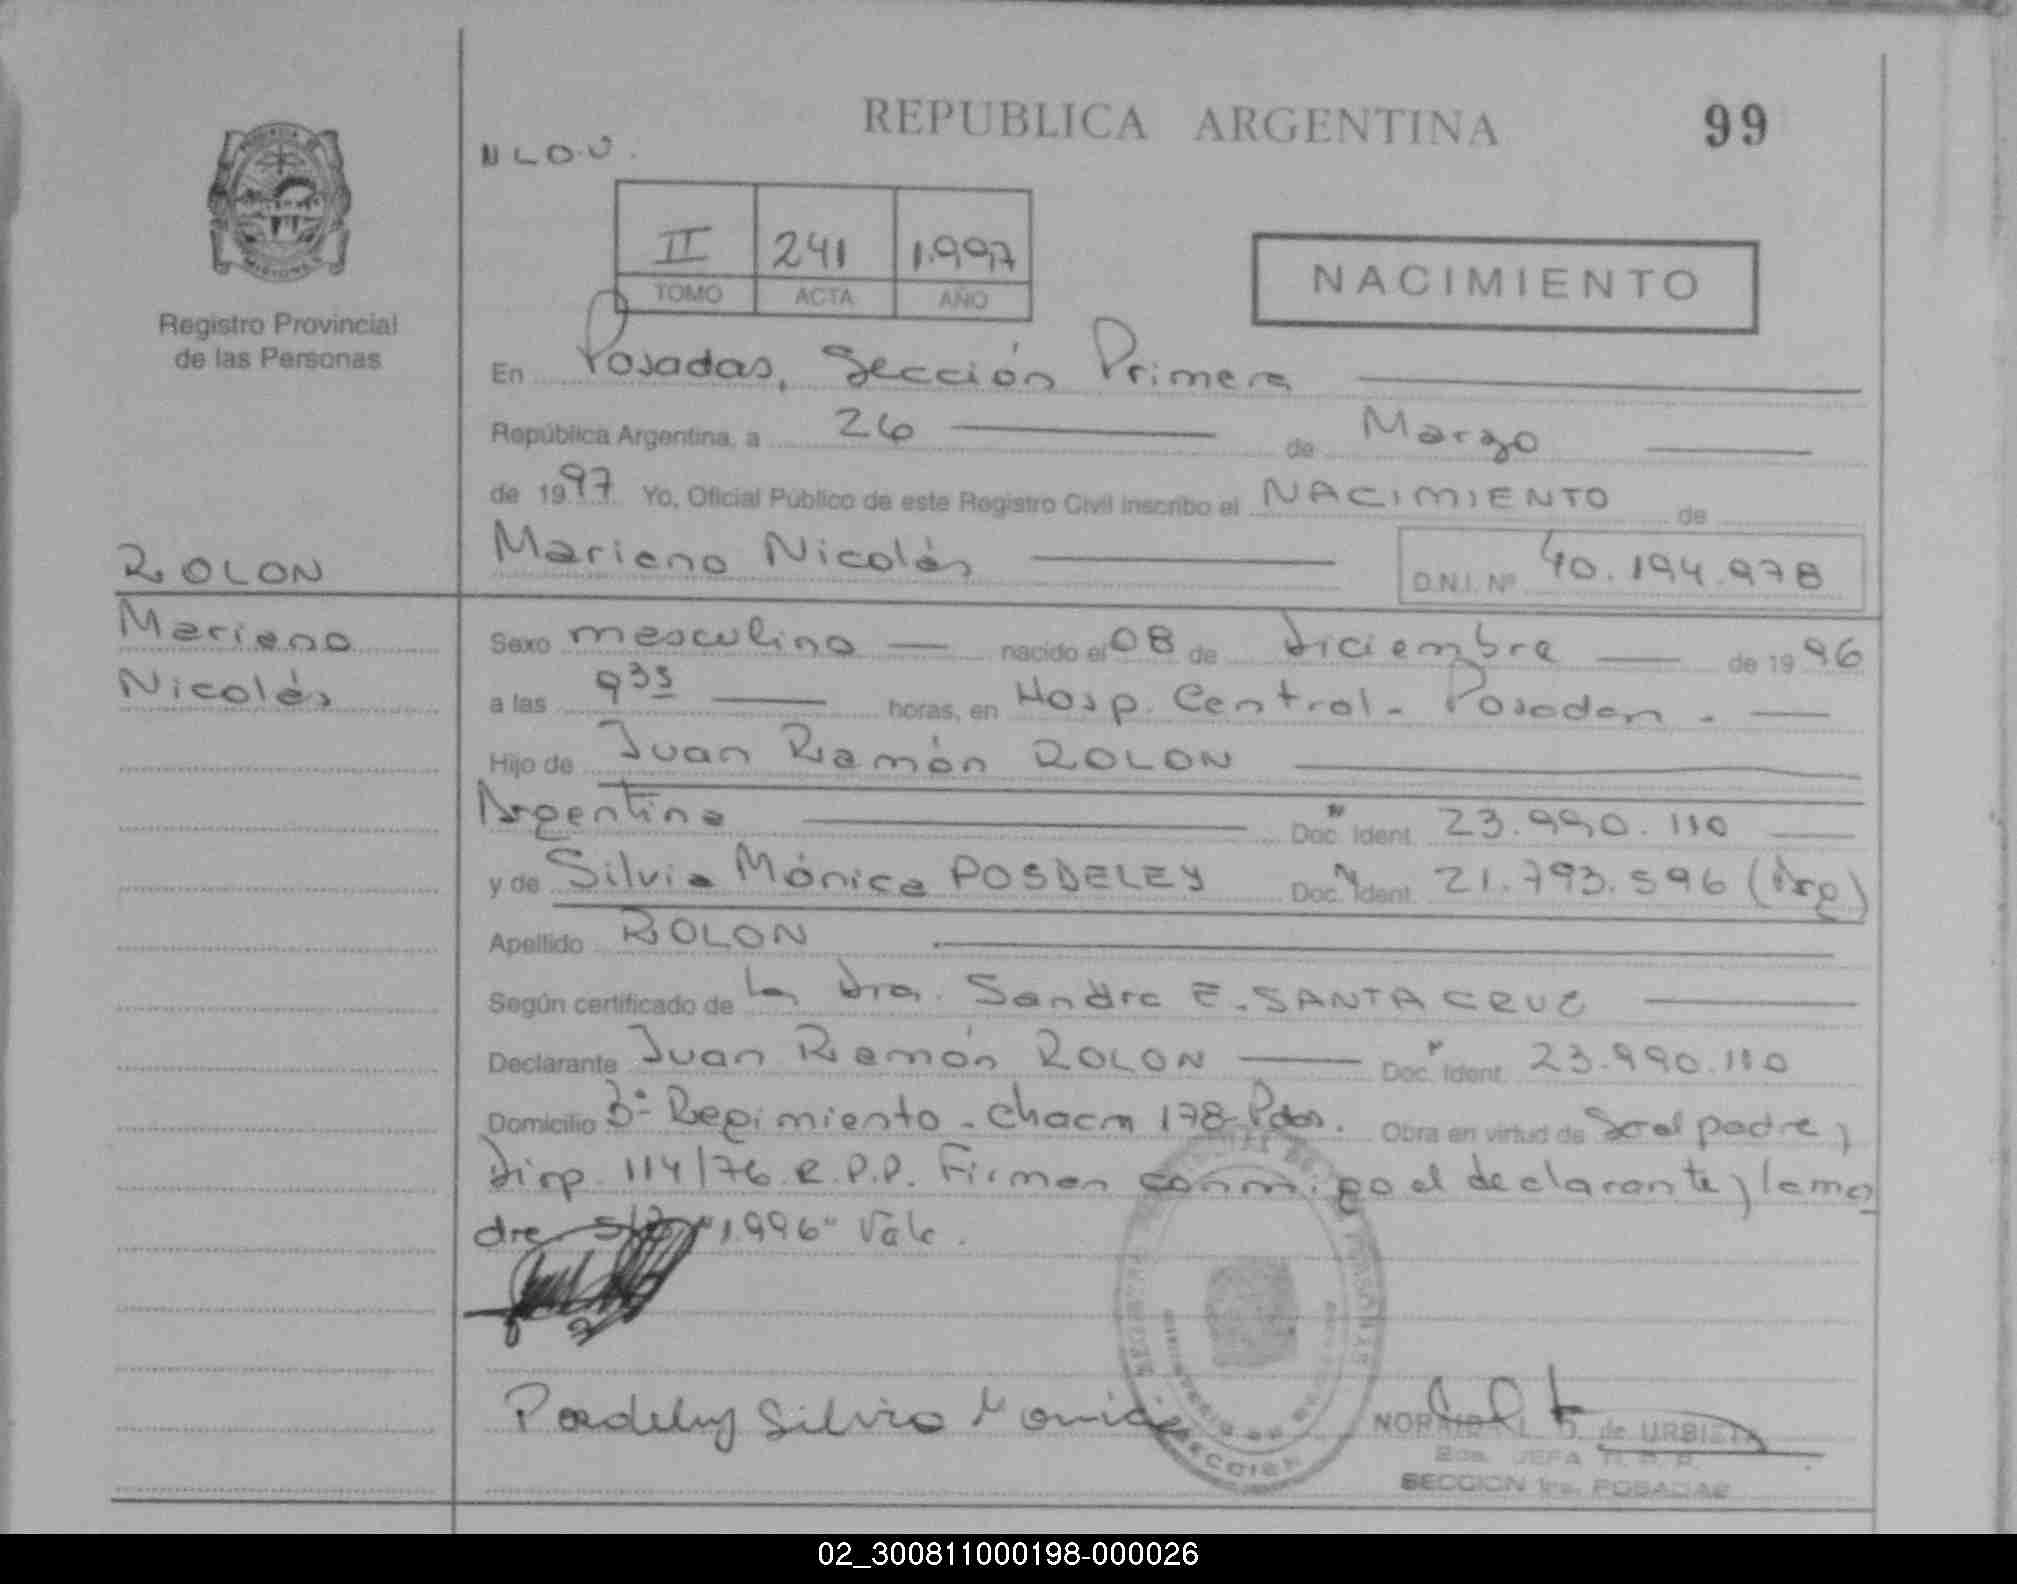 REPUBLICA ARGENTINA
99
N L O.U.
II 241 1.997
TOMO ACTA AÑO
NACIMIENTO
Registro Provincial
de las Personas
En Posadas, Sección Primera
República Argentina, a 26 de Marzo
de 1997 Yo, Oficial Público de este Registro Civil inscribo el NACIMIENTO de
ROLON
Mariano Nicolás
D.N.I. Nº 40.194.978
Mariano
Nicolás
Sexo masculino nacido el 08 de diciembre de 1996
a las 9 35 horas, en Hosp. Central - Posadas -
Hijo de Juan Ramón ROLON
Argentina Doc. Ident. 23.990.110
y de Silvia Mónica POSDELEY Doc. Ident. 21.793.596 (Arg)
Apellido ROLON
Según certificado de la Dra. Sandra E. SANTA CRUZ
Declarante Juan Ramón ROLON Doc. Ident. 23.990.110
Domicilio 3º Regimiento - Chacra 178 Pdas. Obra en virtud de Ser el padre y
Disp. 114/76 R.P.P. Firman conmigo el declarante y la ma
dre "1.996" Vale.
Posdeley Silvia Monica
de URBIETA
JEFA R. P. P.
SECCION 1ra. POSADAS
MISIONES
SECCION
02_300811000198-000026